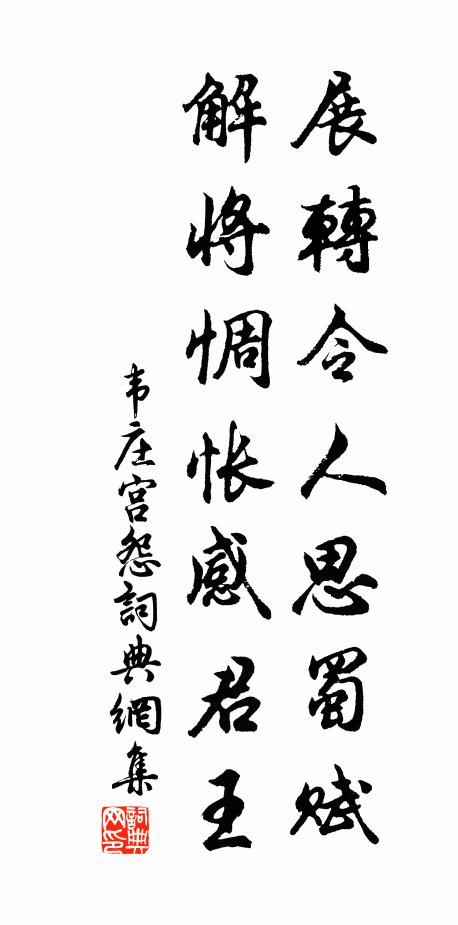 展轉令人思蜀赋
解將惆怅感君王
韦庄宫怨詞典網集
詞典网印